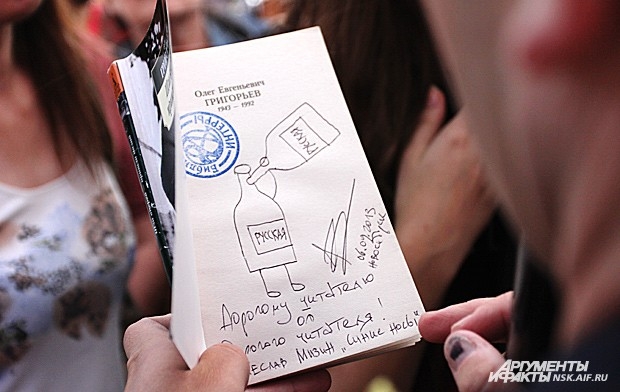 Олег Евгеньевич
ГРИГОРЬЕВ
1943 – 1992
ИНТЕРЬЕРЫ
Библи
РУССКАЯ
РУССКАЯ
06.09.2013
Новосиб
Дорогому читателю
от
Дорогого читателя!
Вячеслав Мизин „Синие Носы"
АРГУМЕНТЫ
И ФАКТЫ NSK.AIF.RU